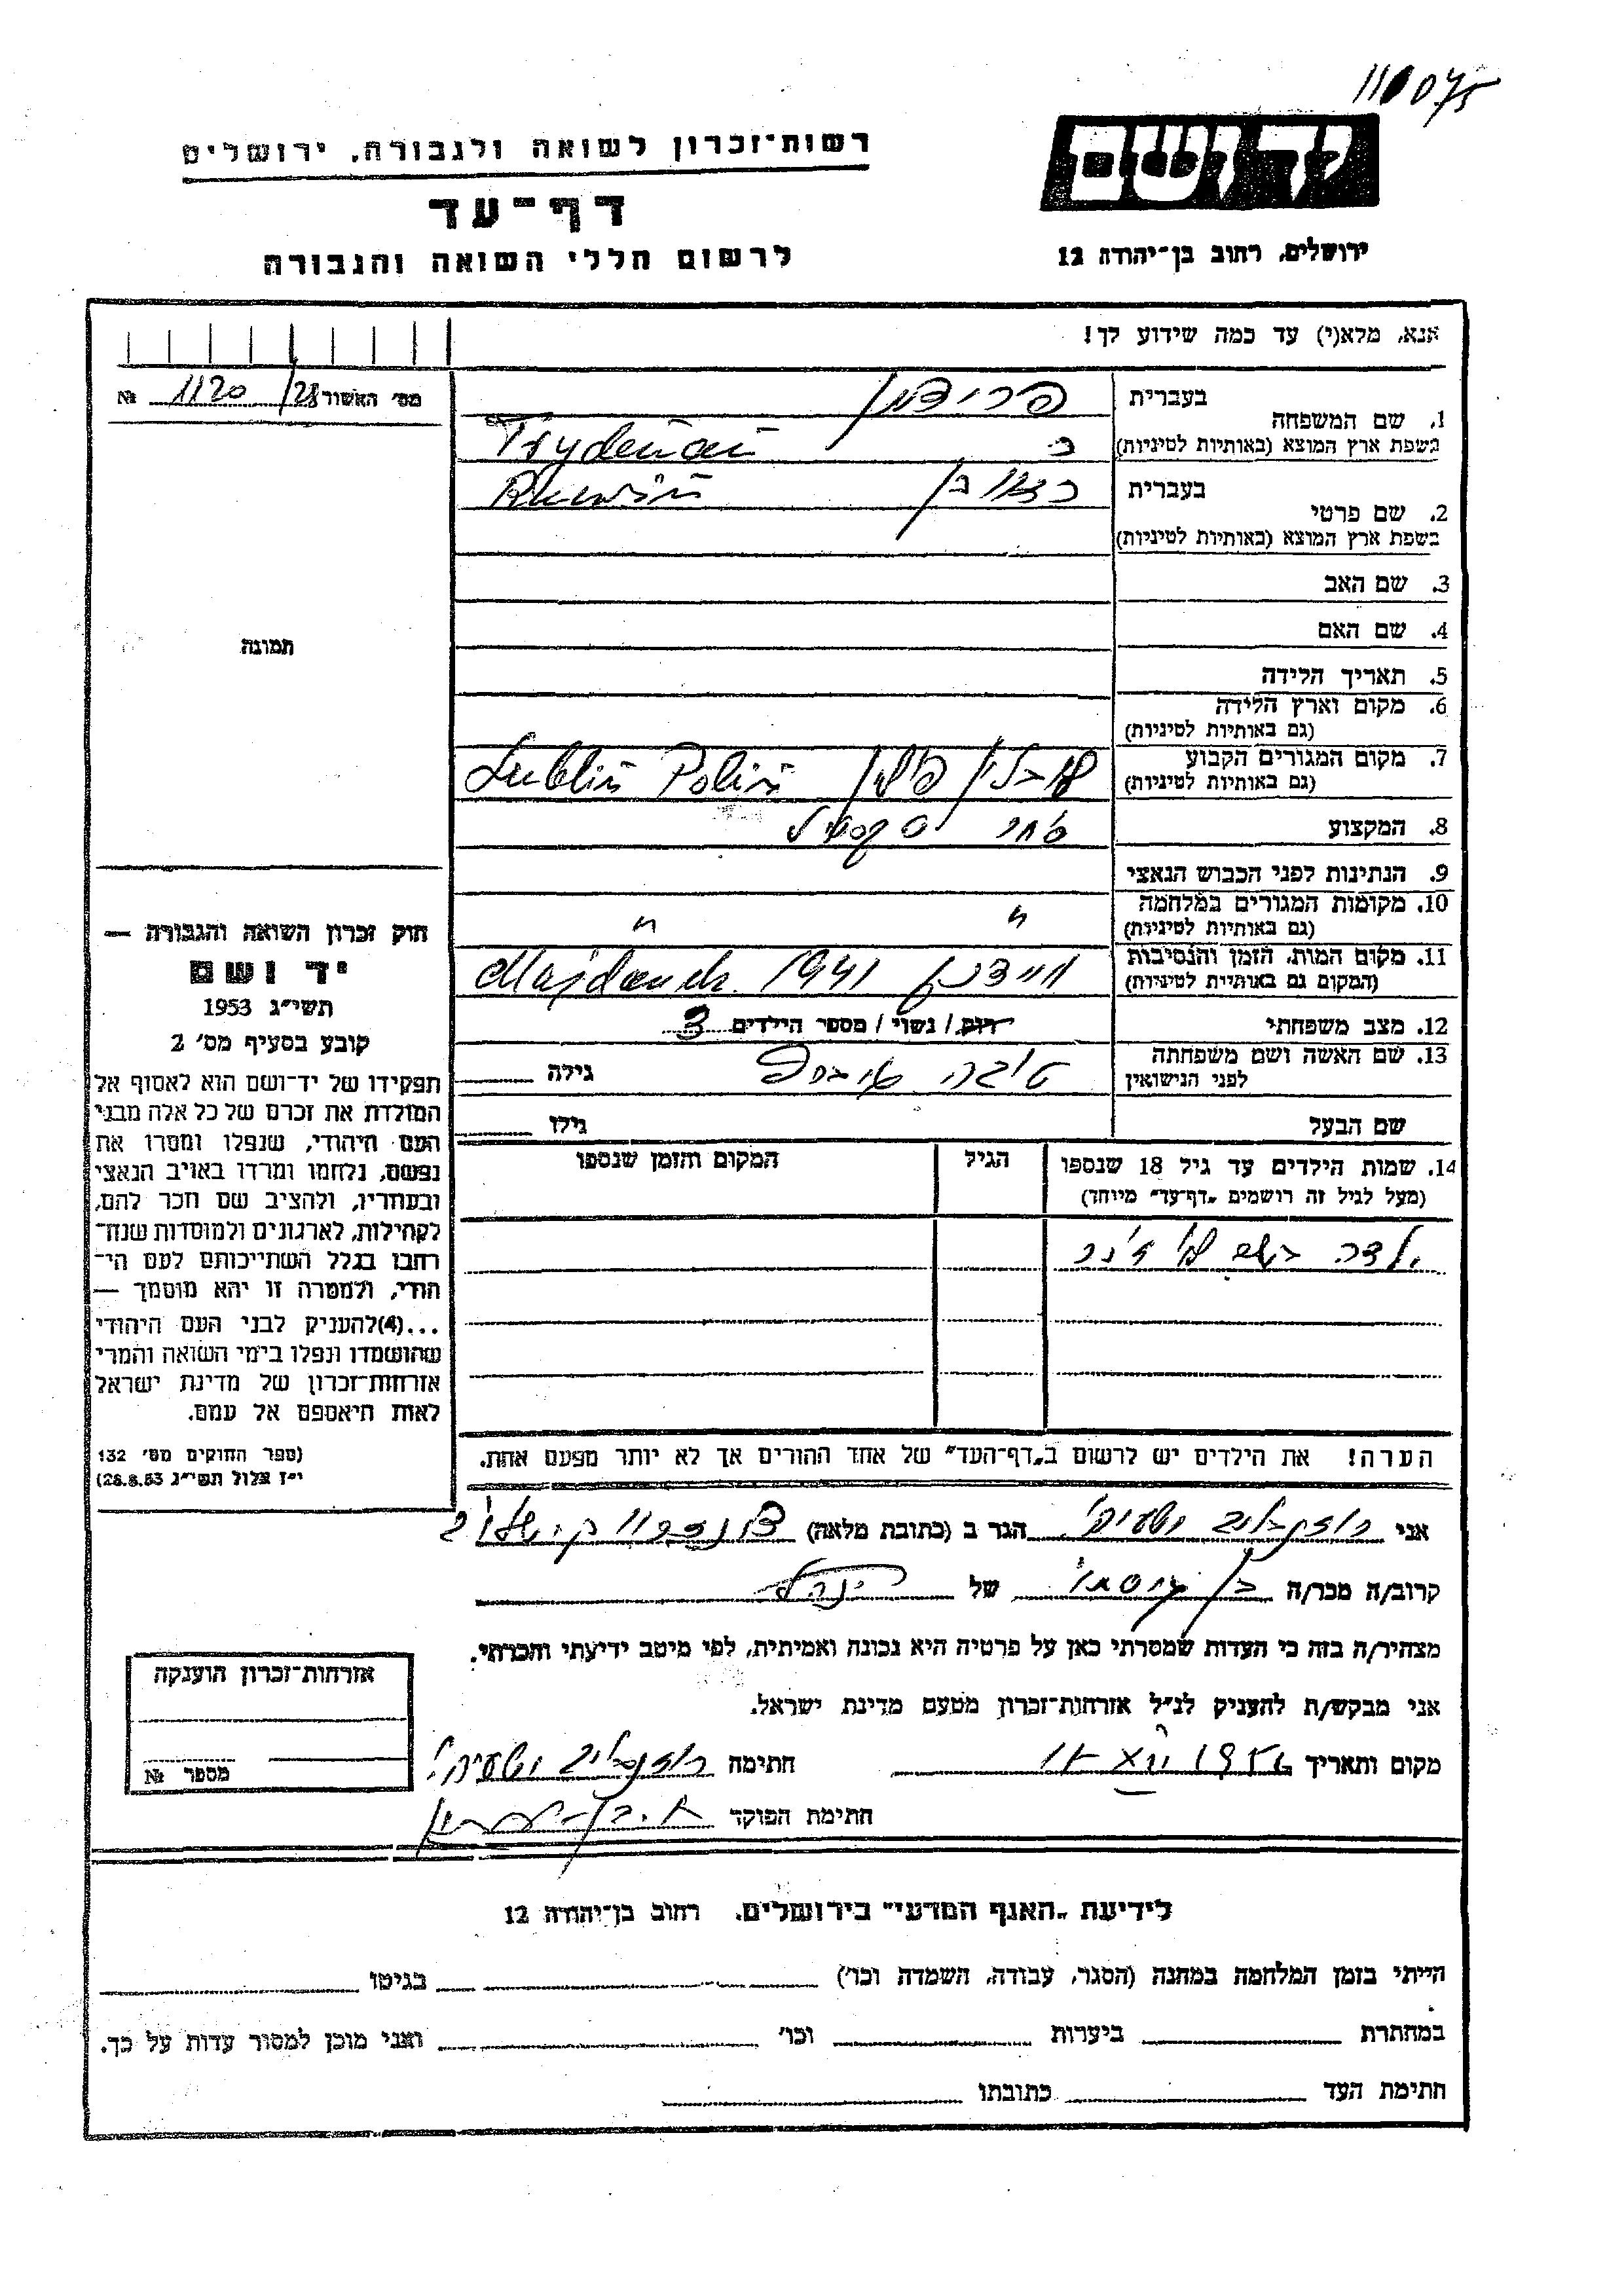 רשות־זכרון לשואה ולגבורה, ירושלים
דף־עד
לרשום חללי השואה והגבורה
יד ושם
ירושלים, רחוב בן־יהודה 12
אנא, מלא(י) עד כמה שידוע לך!
מס׳ האשור 28/ 1120 №
בעברית פרידמן
1. שם המשפחה
בשפת ארץ המוצא (באותיות לטיניות)
בעברית ראובן
2. שם פרטי
בשפת ארץ המוצא (באותיות לטיניות)
3. שם האב
4. שם האם
תמונה
5. תאריך הלידה
6. מקום וארץ הלידה
(גם באותיות לטיניות)
7. מקום המגורים הקבוע לובלין פולין Lublin Polin
(גם באותיות לטיניות)
8. המקצוע סוחר
9. הנתינות לפני הכבוש הנאצי
10. מקומות המגורים במלחמה " "
(גם באותיות לטיניות)
11. מקום המות, הזמן והנסיבות מיידנק 1941 Majdanek
(המקום גם באותיות לטיניות)
12. מצב משפחתי רווק / נשוי / מספר הילדים 3
13. שם האשה ושם משפחתה
לפני הנישואין טובה גילה
שם הבעל גילו
14. שמות הילדים עד גיל 18 שנספו הגיל המקום והזמן שנספו
(מעל לגיל זה רושמים „דף־עד״ מיוחד)
ילדה בשם
הערה! את הילדים יש לרשום ב„דף־העד״ של אחד ההורים אך לא יותר מפעם אחת.
חוק זכרון השואה והגבורה —
יד ושם
תשי״ג 1953
קובע בסעיף מס׳ 2
תפקידו של יד־ושם הוא לאסוף אל
המולדת את זכרם של כל אלה מבני
העם היהודי, שנפלו ומסרו את
נפשם, נלחמו ומרדו באויב הנאצי
ובעוזריו, ולהציב שם וזכר להם,
לקהילות, לארגונים ולמוסדות שנח־
רבו בגלל השתייכותם לעם הי־
הודי, ולמטרה זו יהא מוסמך —
...(4)להעניק לבני העם היהודי
שהושמדו ונפלו בימי השואה והמרי
אזרחות־זכרון של מדינת ישראל
לאות היאספם אל עמם.
(ספר החוקים מס׳ 132
י״ז אלול תשי״ג 28.8.53)
אני הגר ב (כתובת מלאה)
קרוב/ה מכר/ה בן של
מצהיר/ה בזה כי העדות שמסרתי כאן על פרטיה היא נכונה ואמיתית, לפי מיטב ידיעתי והכרתי.
אני מבקש/ת להעניק לנ״ל אזרחות־זכרון מטעם מדינת ישראל.
מקום ותאריך חתימה
חתימת הפוקד
אזרחות־זכרון הוענקה
מספר №
לידיעת „האגף המדעי״ בירושלים, רחוב בן־יהודה 12
הייתי בזמן המלחמה במחנה (הסגר, עבודה, השמדה וכו׳) בגיטו
במחתרת ביערות וכו׳ ואני מוכן למסור עדות על כך.
חתימת העד כתובתו